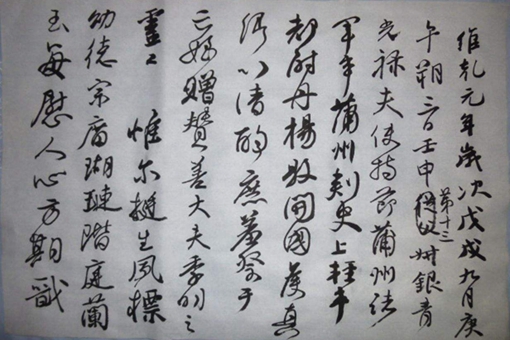 維乾元年歲次戊戌九月庚
午朔三日壬申第十三從父叔銀青
光祿夫使持節蒲州諸
軍事蒲州刺史上輕車
都尉丹楊縣開國侯真
卿以清酌庶羞祭于
亡姪贈贊善大夫季明之
靈曰 惟尔挺生夙標
幼德宗廟瑚璉階庭蘭
玉每慰人心方期戩